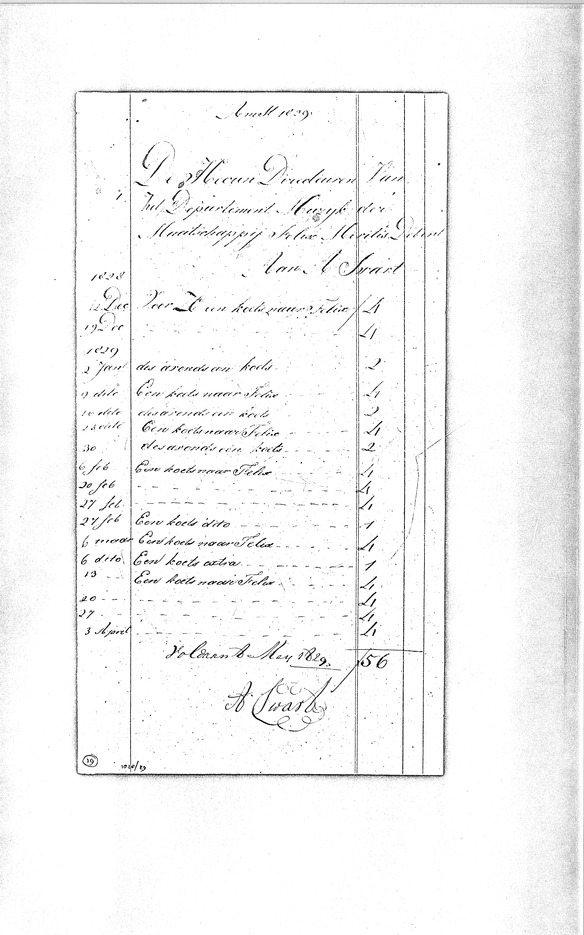 Amst 1829
De Heeren Directeuren Van
het Departement Muzyk der
Maatschappij Felix Meritis Debent
Aan A Swart
1828
12 Dec Voor een koets naar Felix f 4
19 Dec 4
1829
2 Jan des avonds een koets 2
9 dito Een koets naar Felix 4
10 dito des avonds een koets 2
23 dito Een koets naar Felix 4
30 des avonds een koets 2
6 feb Een koets naar Felix 4
20 feb 4
27 feb 4
27 feb Een koets dito 1
6 maar Een koets naar Felix 4
6 dito Een koets extra 1
13 Een koets naar Felix 4
20 4
27 4
3 April 4
Voldaan May 1829 f 56
A Swart
19
1020/29